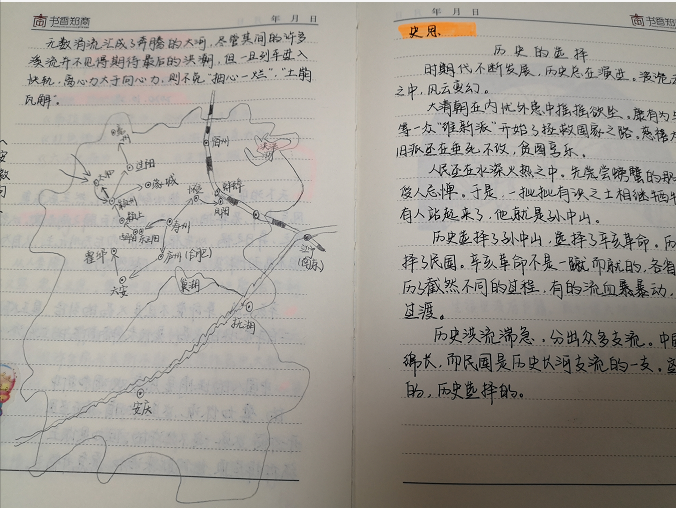 书香知商
年 月 日
无数涓流汇成了奔腾的大河，尽管其间的许多
溪流并不见得期待最后的洪潮，但一旦列车进入
快轨，离心力大于向心力，则不免“捆心一烂”，“土崩
瓦解”。
宿州
太和
阜阳
蒙城
颍州
颍上
蚌埠
凤阳
正阳
寿州
霍邱
庐州(合肥)
六安
巢湖
江宁
(南京)
芜湖
安庆
年 月 日
书香知商
史思
历史的选择
时期代不断发展，历史总在演进。滚滚
之中，风云变幻。
大清朝在内忧外患中摇摇欲坠。康有为
等一众“维新派”开始了拯救国家之路。慈禧
旧派还在垂死不改，贪图享乐。
人民还在水深火热之中。先尝尝螃蟹的
没人忌惮。于是，一批批有识之士相继牺牲
有人站起来了，他就是孙中山。
历史选择了孙中山，选择了辛亥革命。历
择了民国。辛亥革命不是一蹴而就的，各省
历了截然不同的过程，有的流血暴动，
过渡。
历史洪流湍急，分出众多支流。中国
绵长，而民国是历史长河支流的一支。
的，历史选择的。